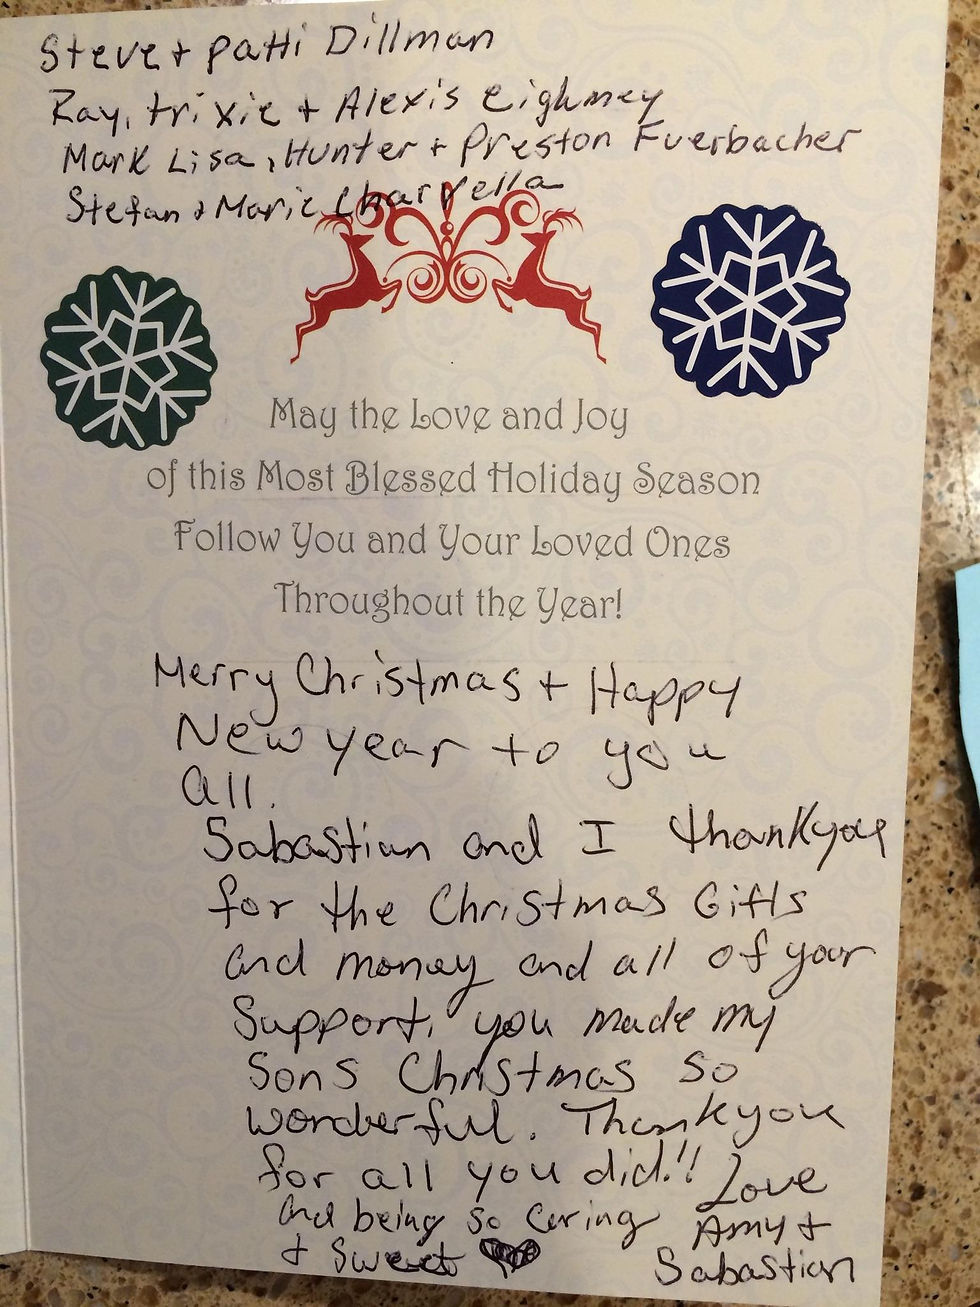 Steve + Patti Dillman
Ray, trixie + Alexis eighmey
Mark Lisa, Hunter + Preston Fuerbacher
Stefan + Marie Charvella
May the Love and Joy
of this Most Blessed Holiday Season
Follow You and Your Loved Ones
Throughout the Year!
Merry Christmas + Happy
New year to you
all.
Sabastian and I thankyou
for the Christmas Gifts
and money and all of your
Support, you made my
Sons Christmas so
wonderful. Thankyou
for all you did!!
and being so caring
+ Sweet
Love
Amy +
Sabastian